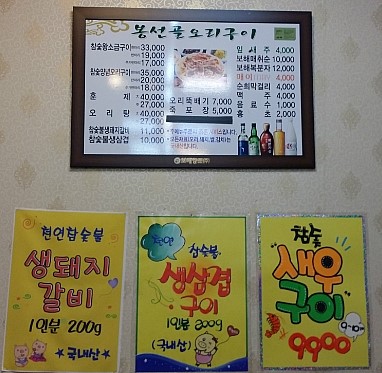 봉선골오리구이
참숯왕소금구이 33,000
19,000
17,000
참숯양념오리구이 35,000
20,000
18,000
훈제 40,000
오리탕 40,000
27,000
참숯불생돼지갈비 11,000
참숯불생삼겹 10,000
오리뚝배기 7,000
죽포장 5,000
잎새주 4,000
보해매취순 10,000
보해복분자 12,000
매이 4,000
순희막걸리 4,000
맥주 4,000
음료수 1,000
홍초 2,000
천연참숯불
생돼지
갈비
1인분 200g
국내산
천연
참숯불
생삼겹
구이
1인분 200g
(국내산)
참숯
새우
구이
9-10마리
9900